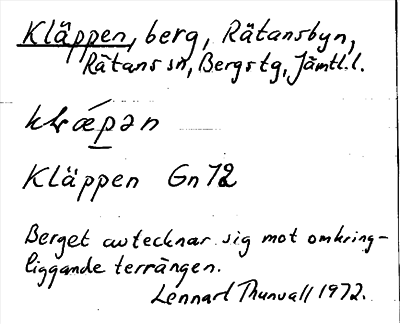 Kläppen, berg, Rätansbyn,
Rätans sn, Bergs tg, Jämtl.l.
Kläppen Gn 72
Berget avtecknar sig mot omkring-
liggande terrängen.
Lennart Thunvall 1972.